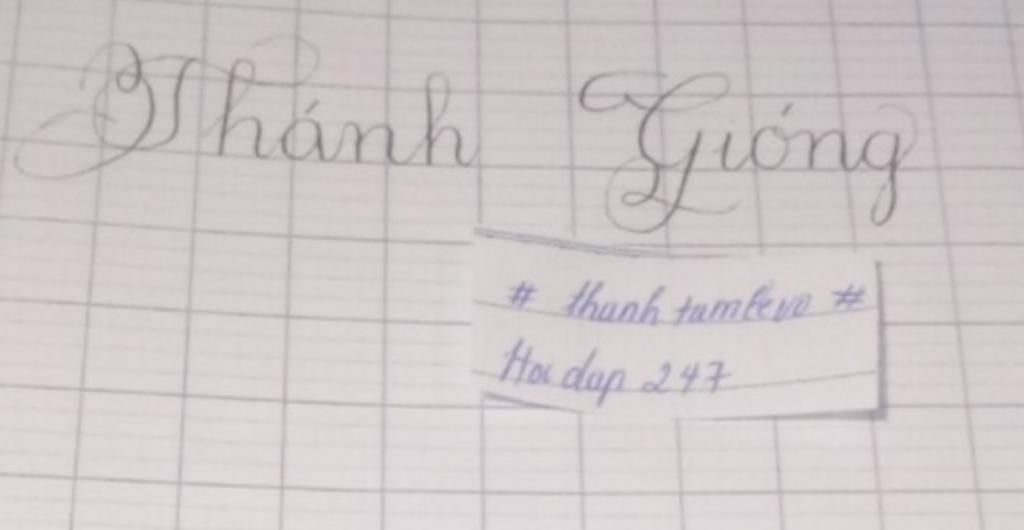 Thánh Gióng
# thanhtamlevo #
Hoidap 247